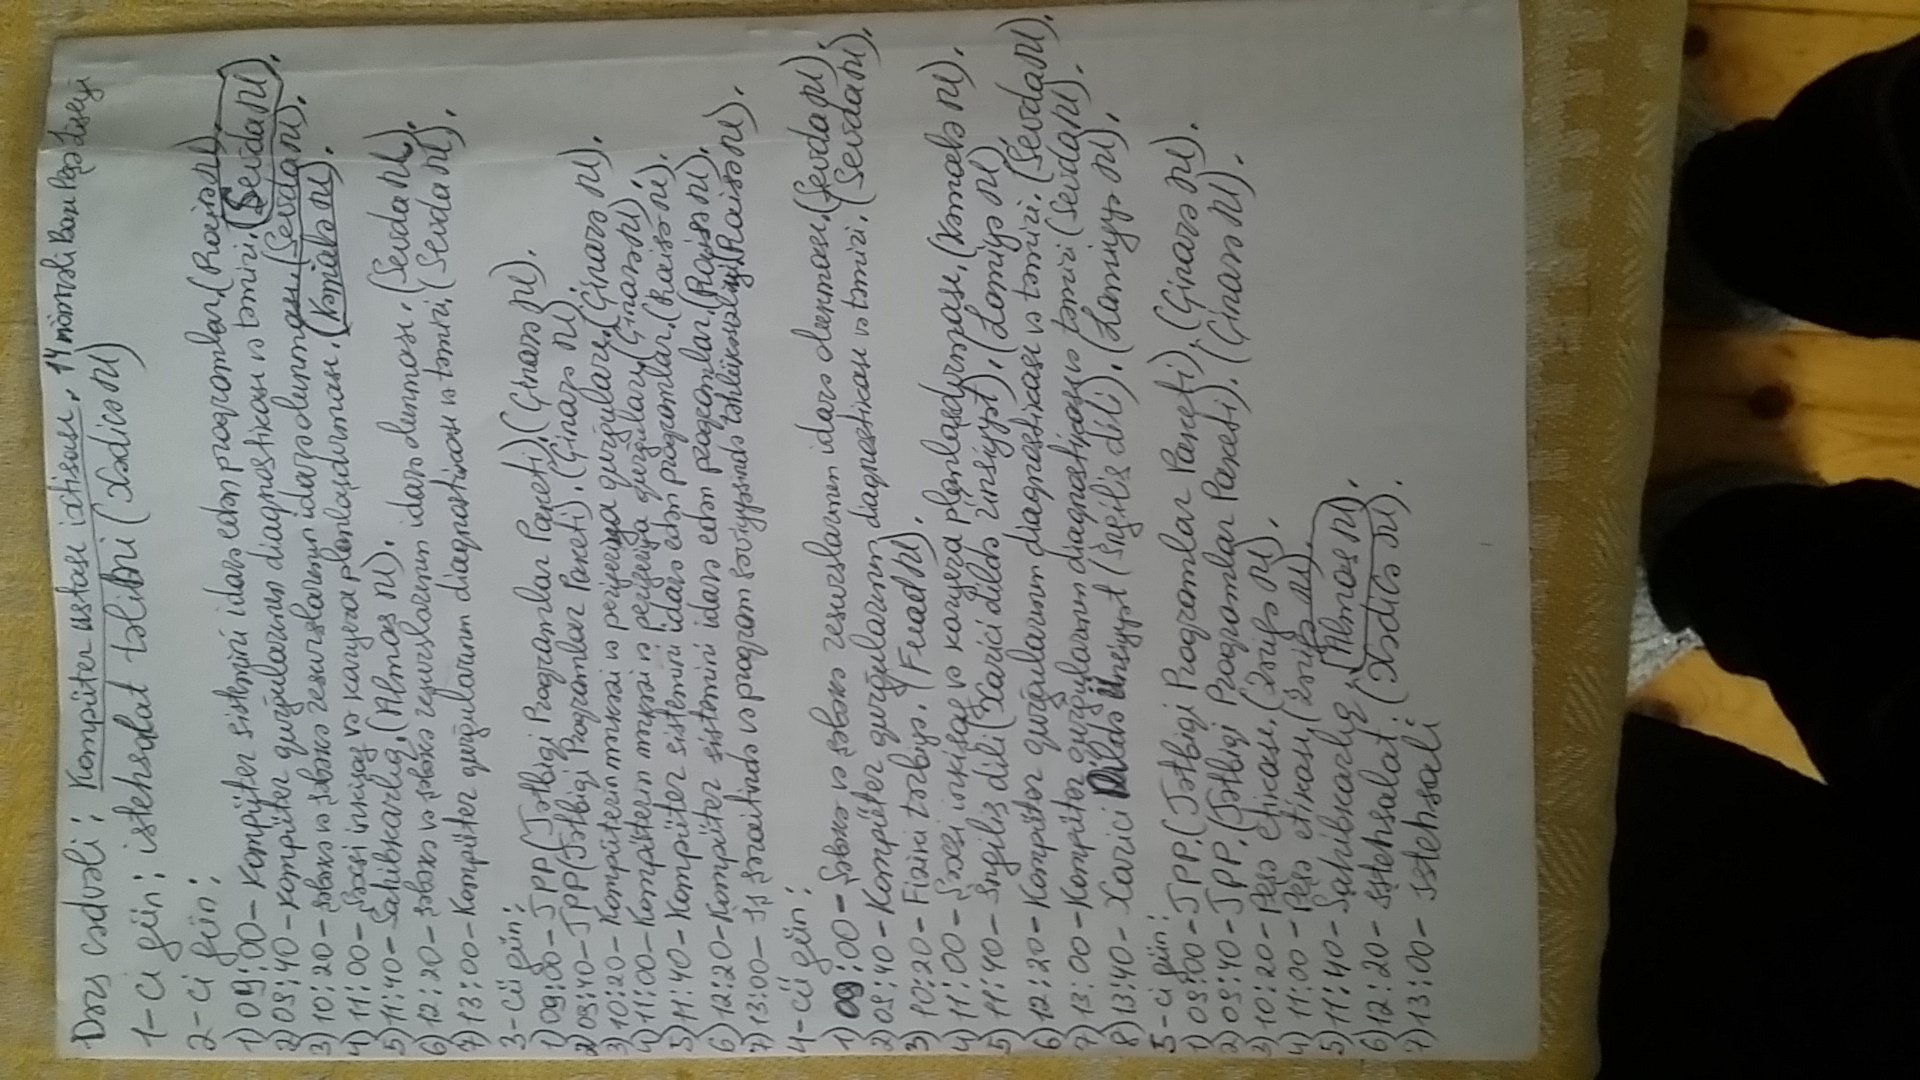 Dərs cədvəli: Kompüter ustası ixtisası. 14 nömrəli Bakı Peşə Liseyi
1-ci gün: istehsalat təlimi (Xədicə M)
2-ci gün:
1) 09:00 - Kompüter sistemini idarə edən proqramlar. (Raisə M).
2) 09:40 - Kompüter qurğularının diaqnostikası və təmiri. (Sevda M).
3) 10:20 - Şəbəkə və şəbəkə resurslarının idarə olunması. (Sevda M).
4) 11:00 - Şəxsi inkişaf və karyera planlaşdırması. (Kəmalə M).
5) 11:40 - Sahibkarlıq. (Almas M).
6) 12:20 - Şəbəkə və şəbəkə resurslarının idarə olunması. (Sevda M).
7) 13:00 - Kompüter qurğularının diaqnostikası və təmiri. (Sevda M).
3-cü gün:
1) 09:00 - TPP (Tətbiqi Proqramlar Paketi). (Çinarə M).
2) 09:40 - TPP (Tətbiqi Proqramlar Paketi). (Çinarə M).
3) 10:20 - Kompüterin mərkəzi və periferiya qurğuları. (Çinarə M).
4) 11:00 - Kompüterin mərkəzi və periferiya qurğuları. (Çinarə M).
5) 11:40 - Kompüter sistemini idarə edən proqramlar. (Raisə M).
6) 12:20 - Kompüter sistemini idarə edən proqramlar. (Raisə M).
7) 13:00 - İş şəraitində və proqram səviyyəsində təhlükəsizliyi (Raisə M).
4-cü gün:
1) 09:00 - Şəbəkə və şəbəkə resurslarının idarə olunması. (Sevda M).
2) 09:40 - Kompüter qurğularının diaqnostikası və təmiri. (Sevda M).
3) 10:20 - Fiziki tərbiyə. (Fuad M).
4) 11:00 - Şəxsi inkişaf və karyera planlaşdırması. (Kəmalə M).
5) 11:40 - İngilis dili (Xarici dildə ünsiyyət). (Lamiyə M)
6) 12:20 - Kompüter qurğularının diaqnostikası və təmiri. (Sevda M).
7) 13:00 - Kompüter qurğularının diaqnostikası və təmiri (Sevda M).
8) 13:40 - Xarici Dildə Ünsiyyət (İngilis dili). (Lamiyyə M).
5-ci gün:
1) 09:00 - TPP. (Tətbiqi Proqramlar Paketi). (Çinarə M).
2) 09:40 - TPP. (Tətbiqi Proqramlar Paketi). (Çinarə M).
3) 10:20 - Peşə etikası. (Zərifə M).
4) 11:00 - Peşə etikası. (Zərifə M).
5) 11:40 - Sahibkarlıq. (Almas M).
6) 12:20 - istehsalat. (Xədicə M).
7) 13:00 - istehsali